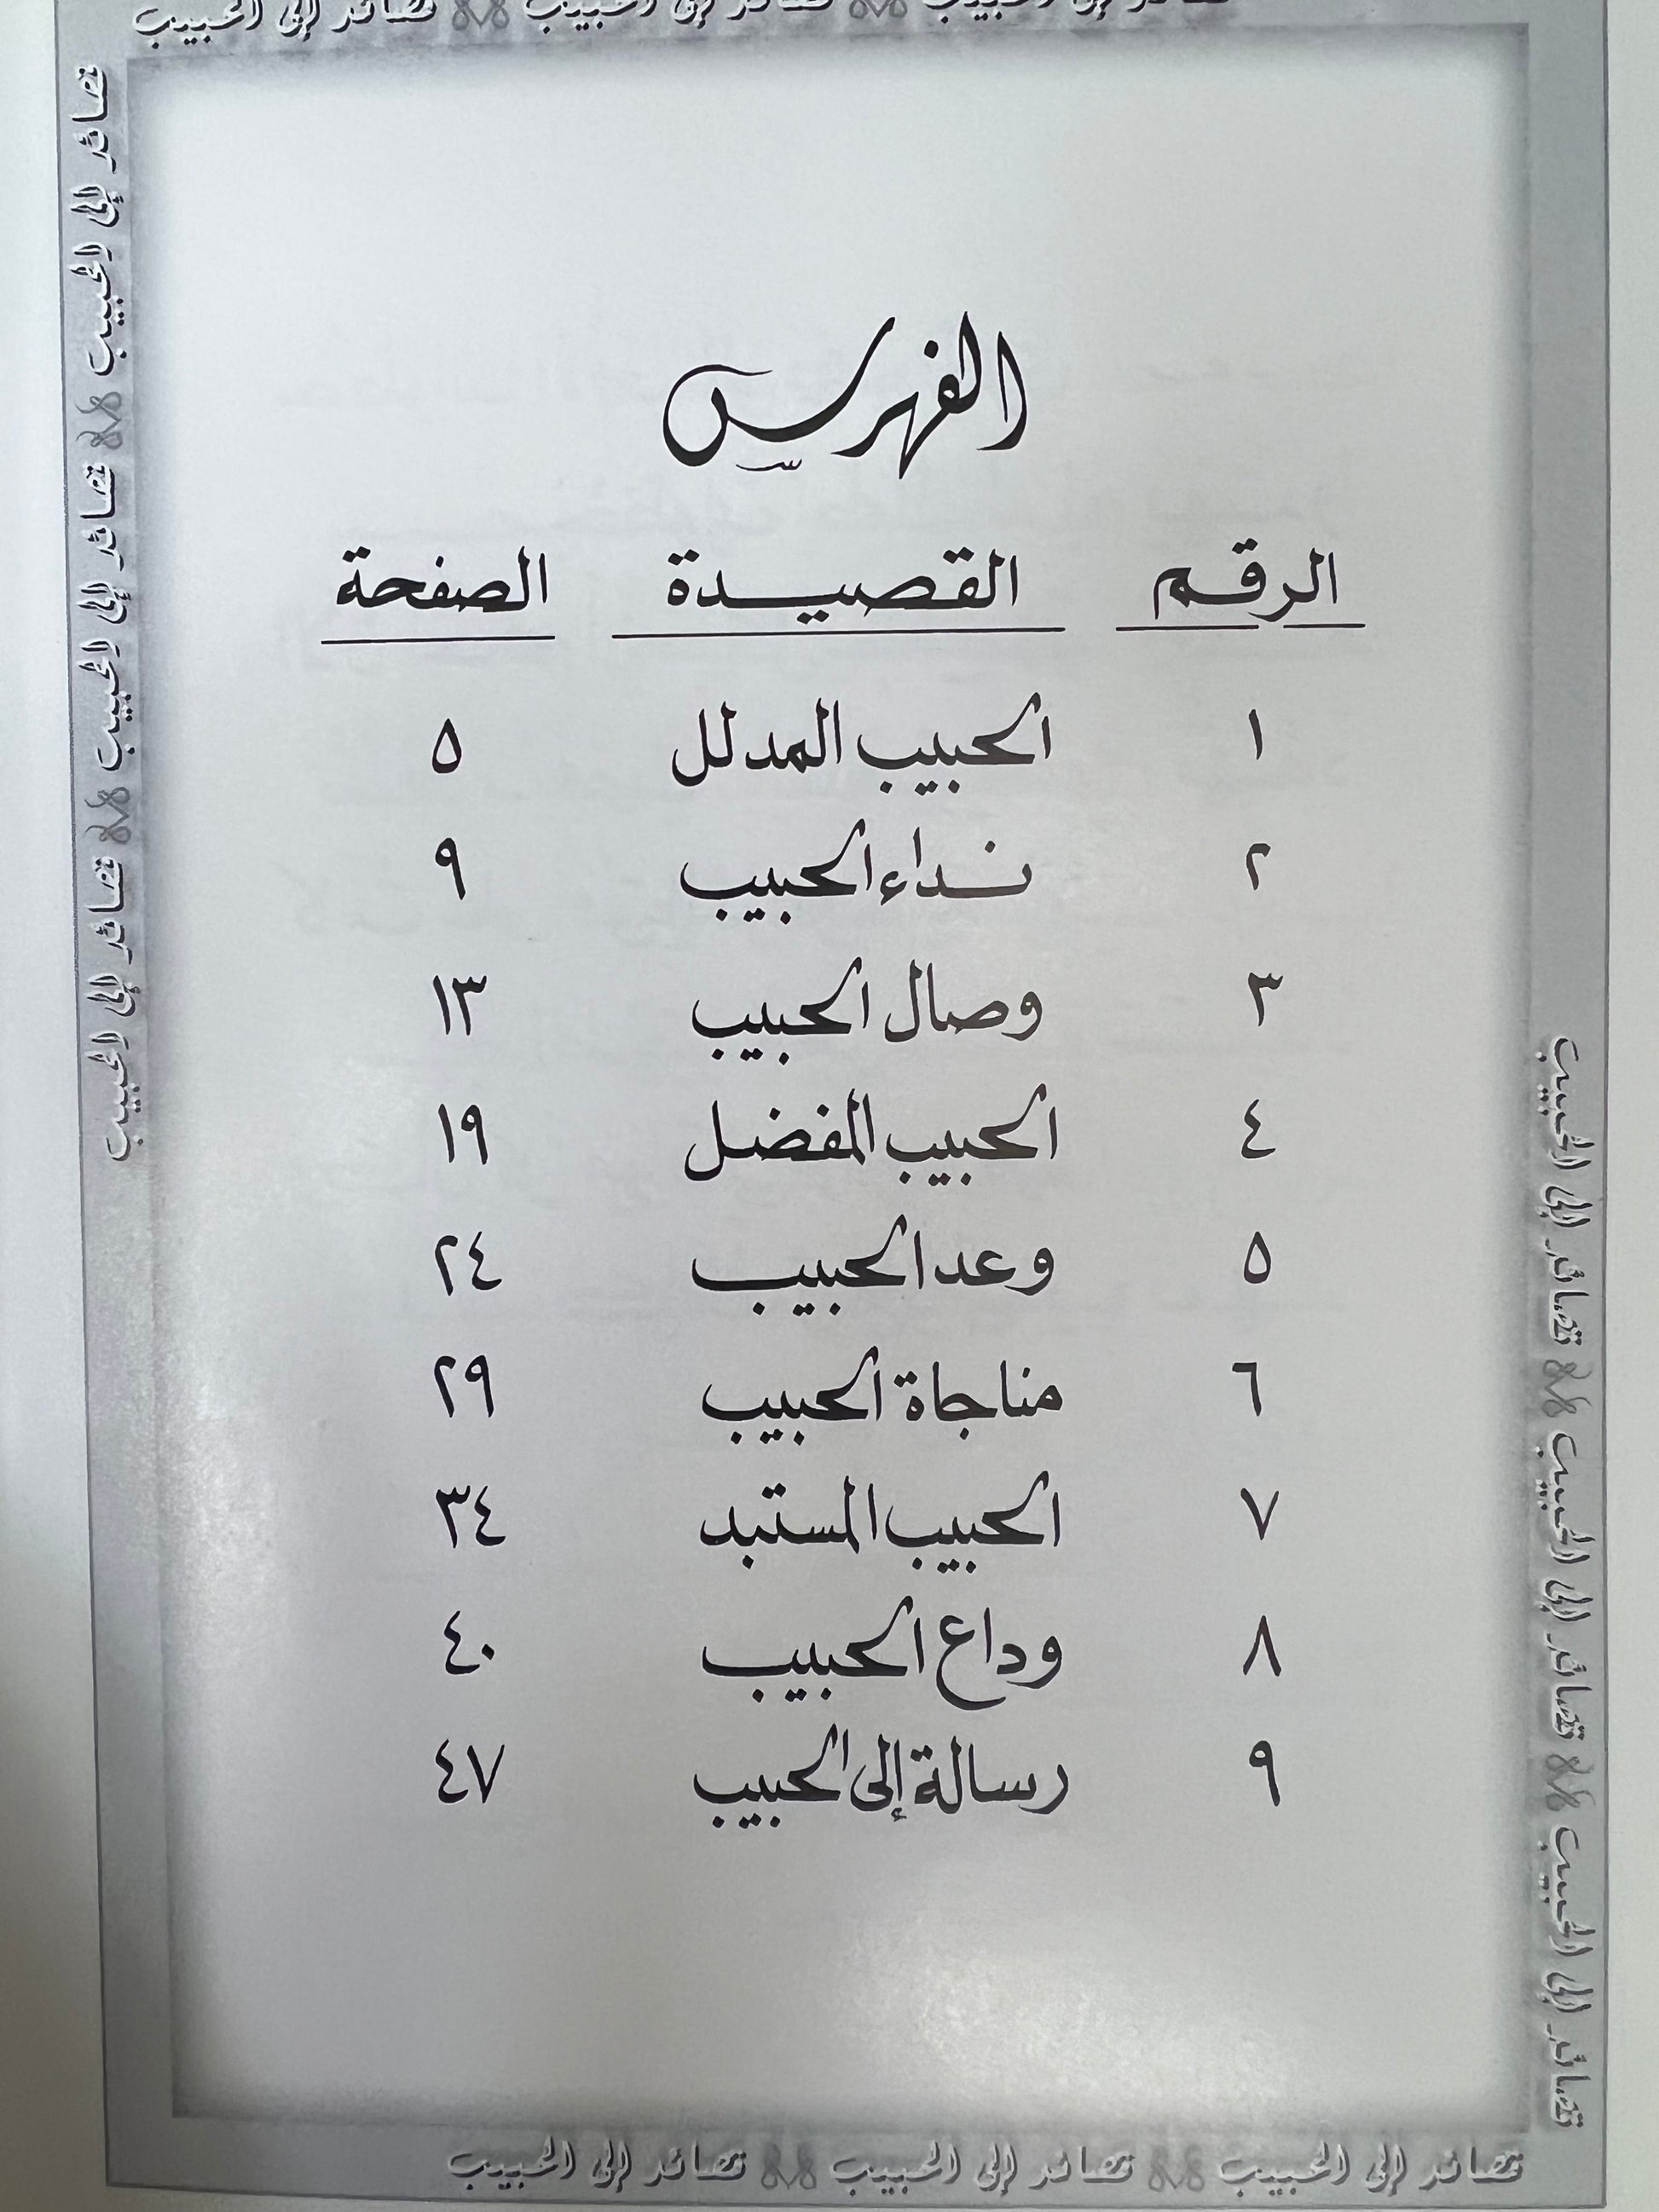 قصائد إلى الحبيب قصائد إلى الحبيب قصائد إلى الحبيب
الفهرس
الرقم القصيدة الصفحة
١ الحبيب المدلل ٥
٢ نداء الحبيب ٩
٣ وصال الحبيب ١٣
٤ الحبيب المفضل ١٩
٥ وعد الحبيب ٢٤
٦ مناجاة الحبيب ٢٩
٧ الحبيب المستبد ٣٤
٨ وداع الحبيب ٤٠
٩ رسالة إلى الحبيب ٤٧
قصائد إلى الحبيب قصائد إلى الحبيب قصائد إلى الحبيب
قصائد إلى الحبيب قصائد إلى الحبيب قصائد إلى الحبيب
قصائد إلى الحبيب قصائد إلى الحبيب قصائد إلى الحبيب